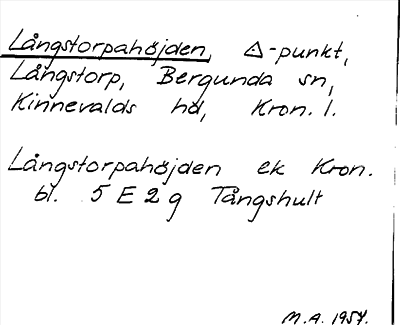 Långstorpahöjden, △-punkt,
Långstorp, Bergunda sn,
Kinnevalds hd, Kron. l.
Långstorpahöjden ek Kron.
bl. 5 E 2 g Tångshult
M.A. 1957.